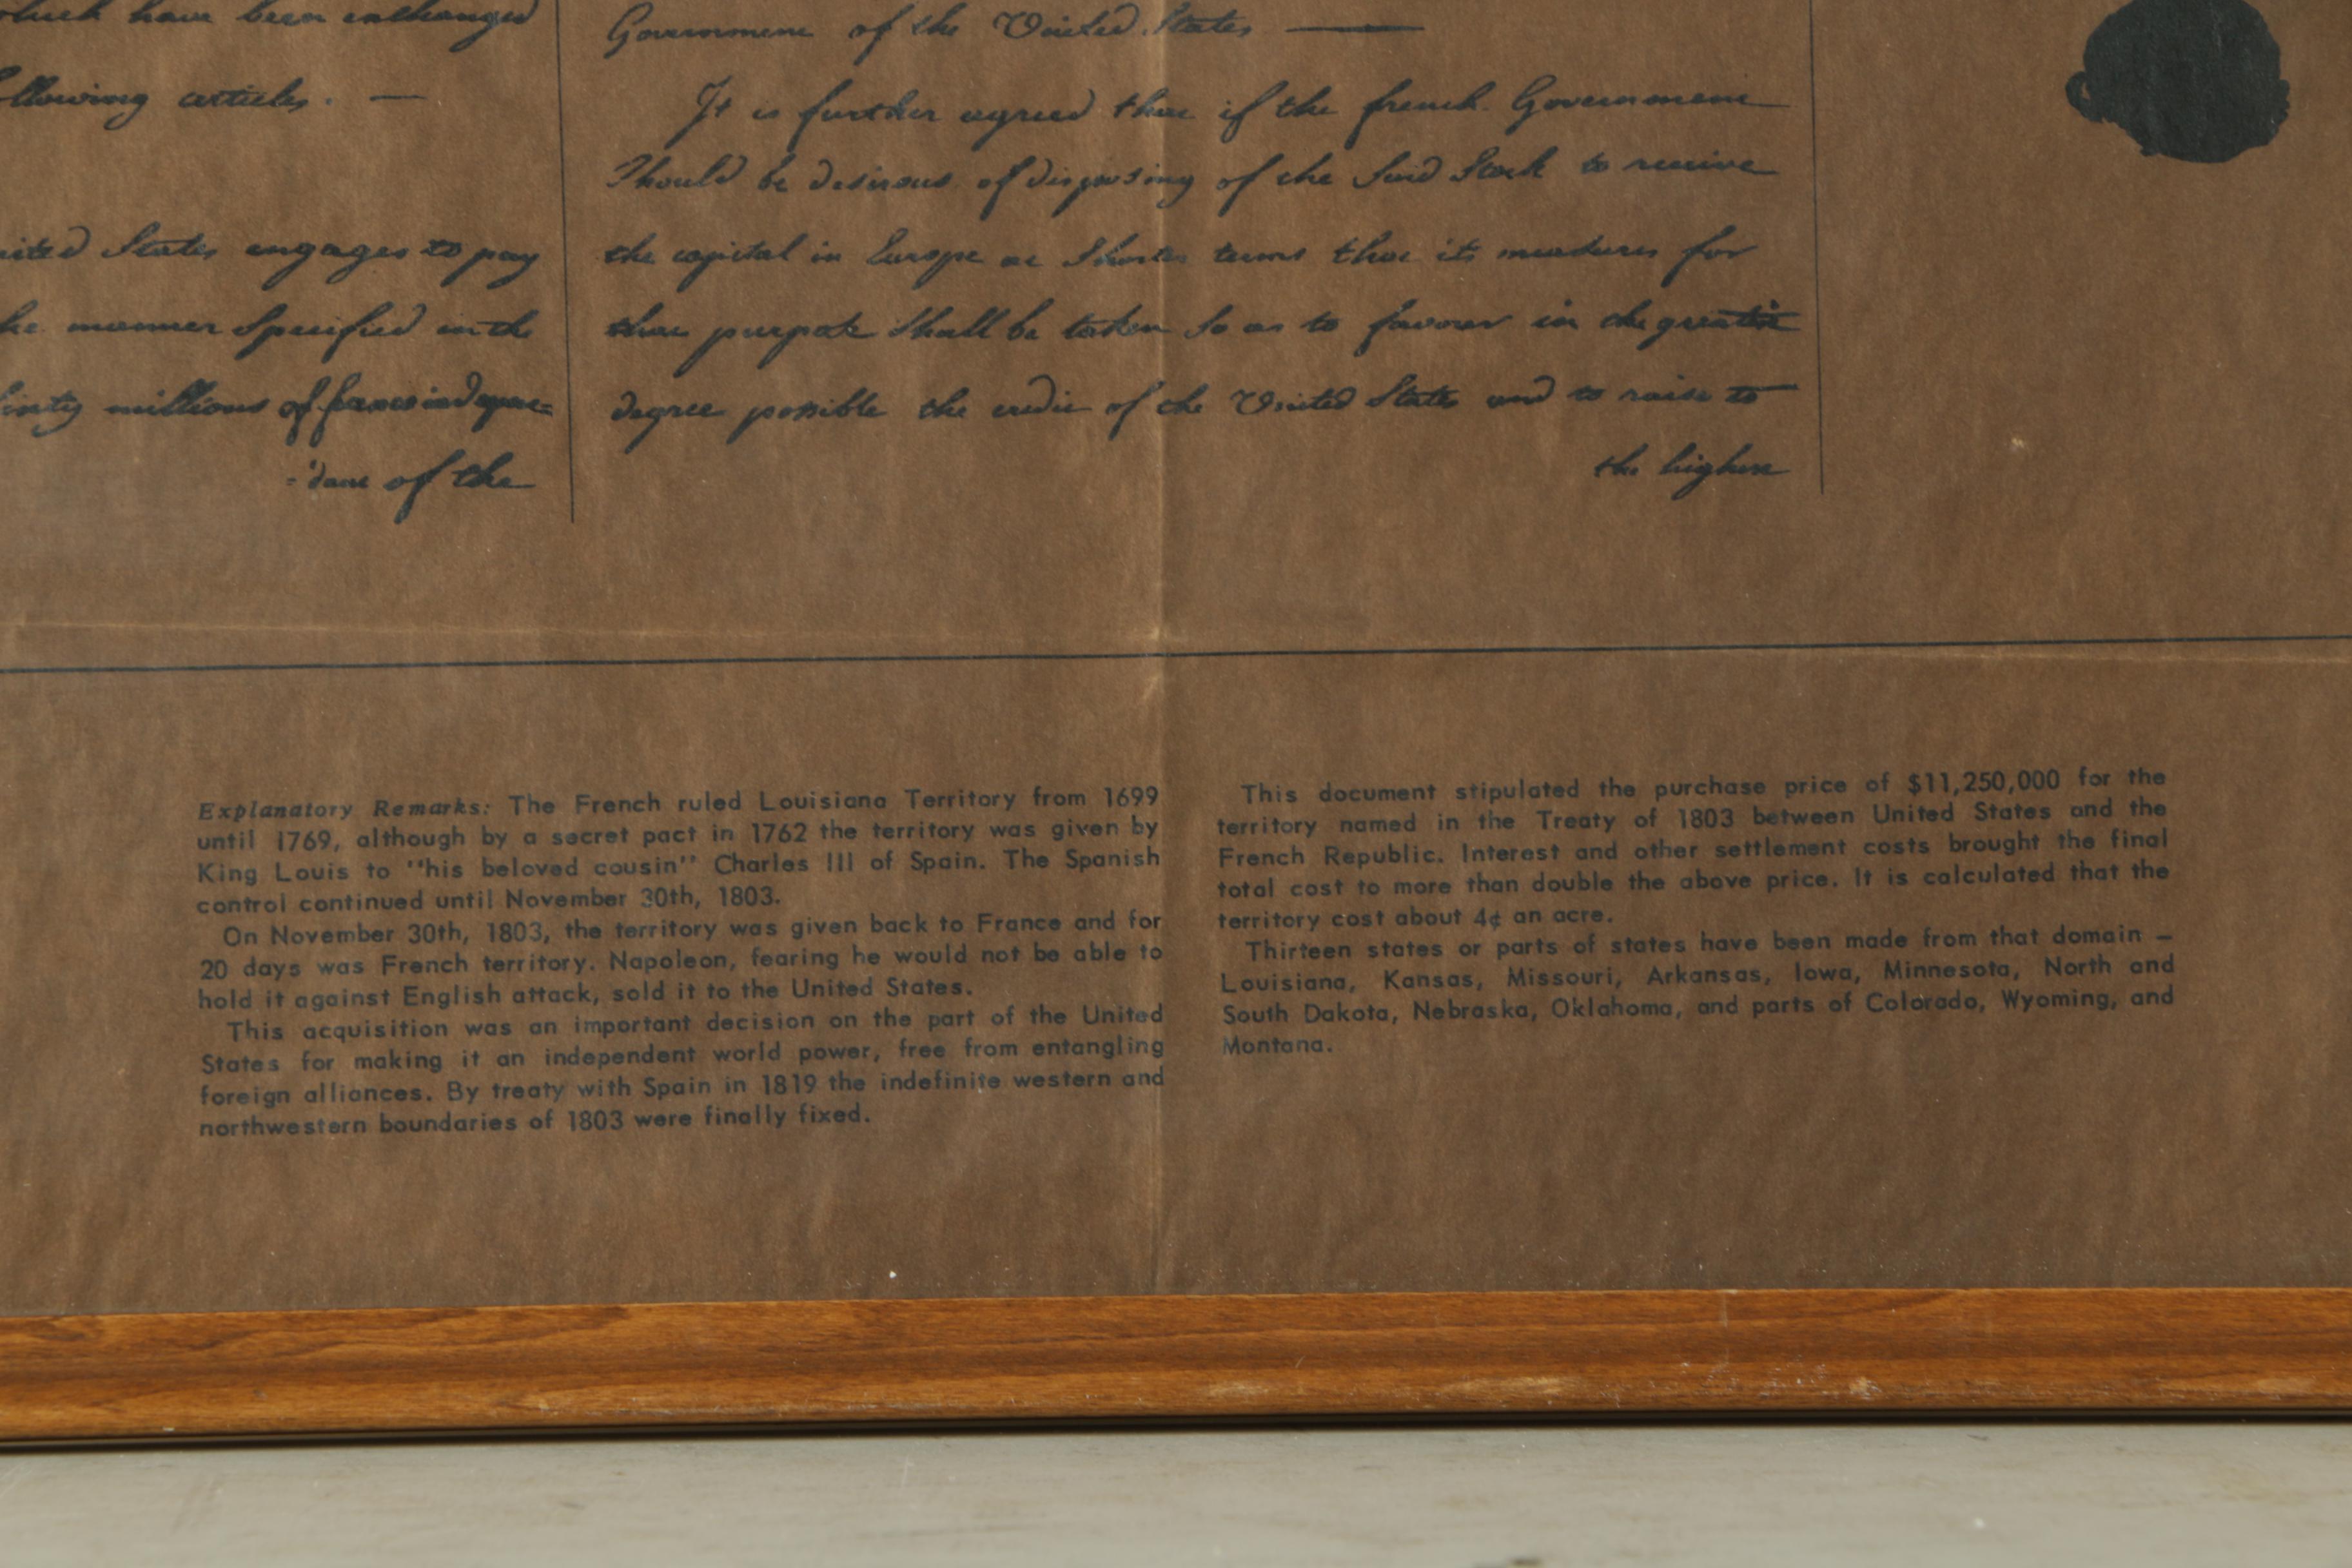 which have been exchanged
ollowing articles. —
nited States engages to pay
he manner Specified in the
millions of francs indepen=
=dant of the
Government of the United States —
It is further agreed that if the french Government
Should be desirous of disposing of the Said Stock to receive
the capital in Europe at Shorter terms that its measures for
that purpose Shall be taken So as to favour in the greatest
degree possible the credit of the United States and to raise to
the highest
Explanatory Remarks: The French ruled Louisiana Territory from 1699
until 1769, although by a secret pact in 1762 the territory was given by
King Louis to "his beloved cousin" Charles III of Spain. The Spanish
control continued until November 30th, 1803.
On November 30th, 1803, the territory was given back to France and for
20 days was French territory. Napoleon, fearing he would not be able to
hold it against English attack, sold it to the United States.
This acquisition was an important decision on the part of the United
States for making it an independent world power, free from entangling
foreign alliances. By treaty with Spain in 1819 the indefinite western and
northwestern boundaries of 1803 were finally fixed.
This document stipulated the purchase price of $11,250,000 for the
territory named in the Treaty of 1803 between United States and the
French Republic. Interest and other settlement costs brought the final
total cost to more than double the above price. It is calculated that the
territory cost about 4¢ an acre.
Thirteen states or parts of states have been made from that domain –
Louisiana, Kansas, Missouri, Arkansas, Iowa, Minnesota, North and
South Dakota, Nebraska, Oklahoma, and parts of Colorado, Wyoming, and
Montana.